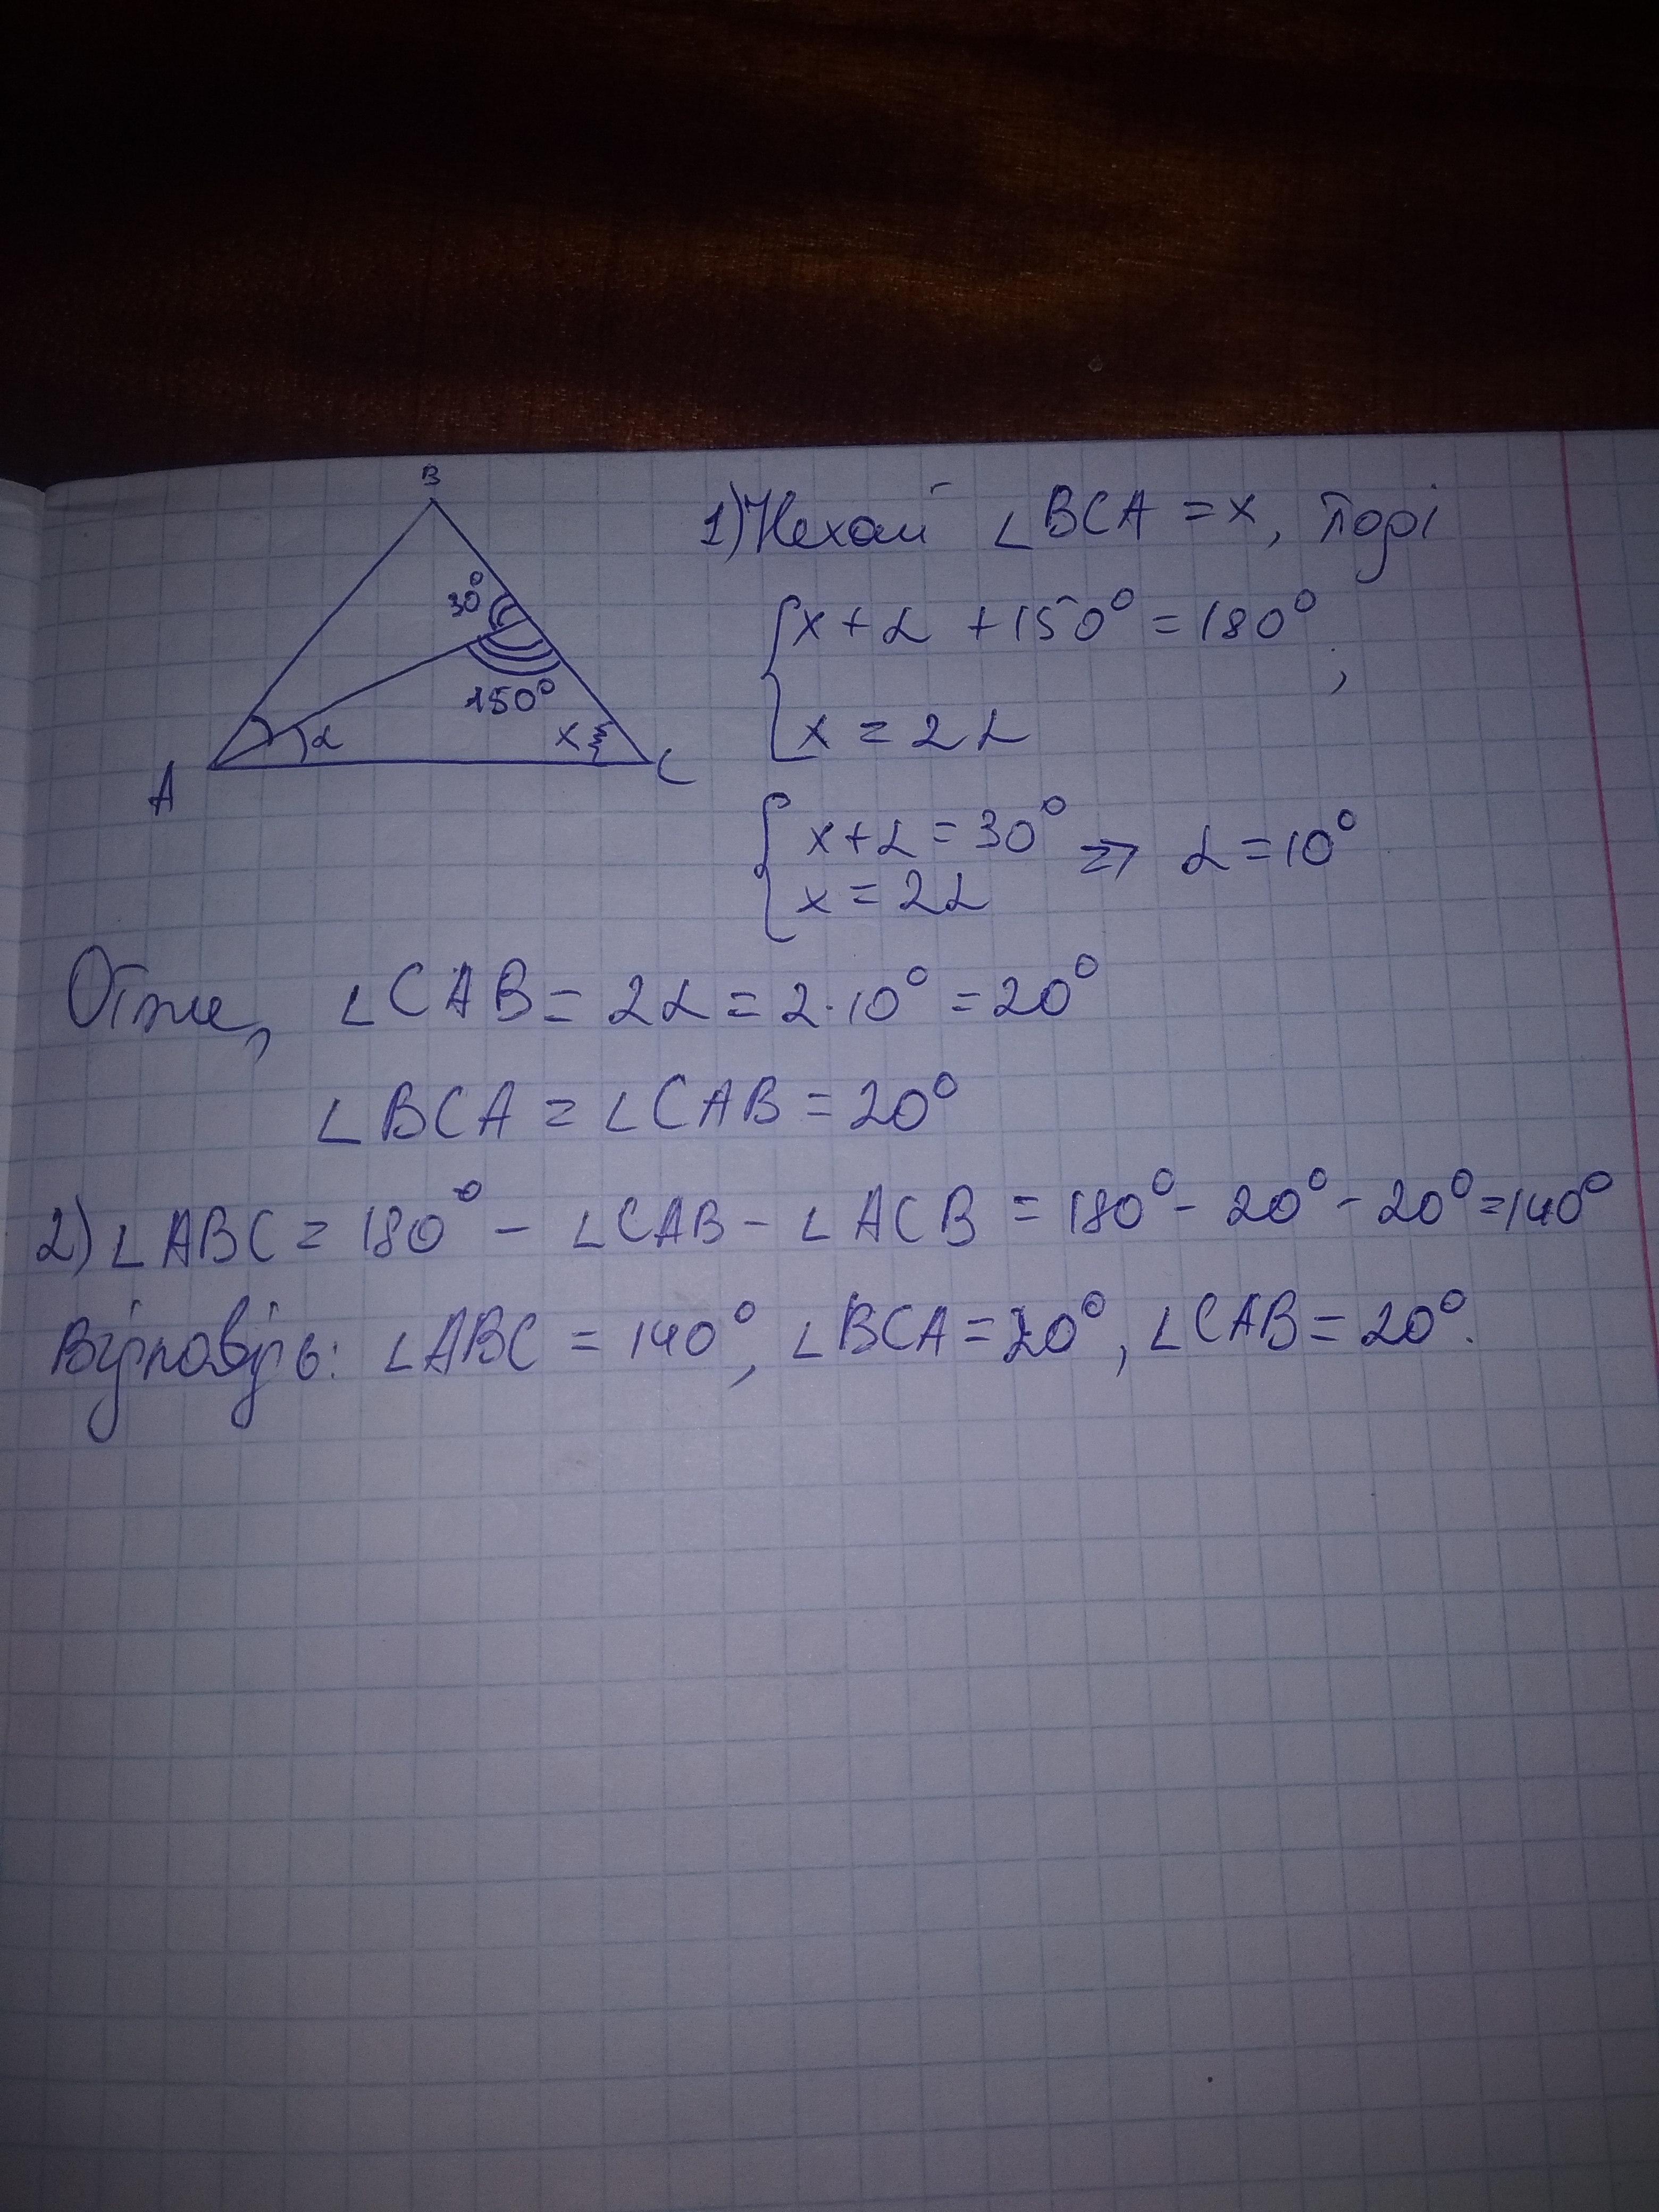 B
30°
150°
α
x
A
C
1) Нехай ∠BCA = x, тоді
{x + α + 150° = 180°
x = 2α ;
{x + α = 30°
x = 2α ⇒ α = 10°
Отже, ∠CAB = 2α = 2·10° = 20°
∠BCA = ∠CAB = 20°
2) ∠ABC = 180° - ∠CAB - ∠ACB = 180° - 20° - 20° = 140°
Відповідь: ∠ABC = 140°, ∠BCA = 20°, ∠CAB = 20°.